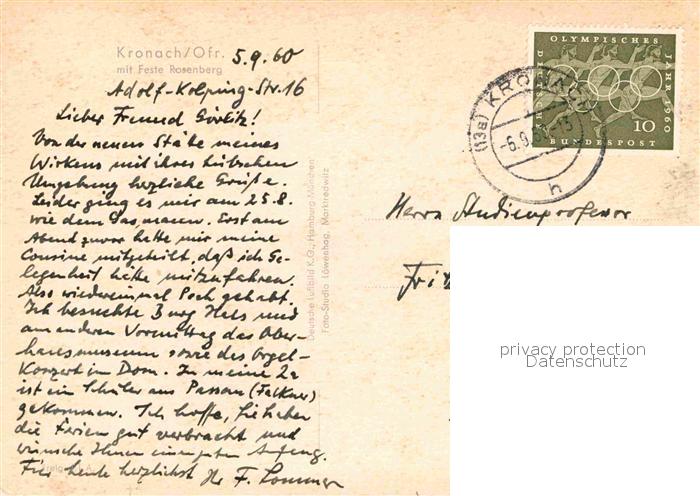 Kronach/Ofr.
mit Feste Rosenberg
5.9.60
Adolf-Kolping-Str. 16
Lieber Freund Görlitz!
Von der neuen Stätte meines
Wirkens mit ihrer hübschen
Umgebung herzliche Grüße.
Leider ging es mir am 25.8.
wie dem Erst am
Abend zuvor hatte mir meine
Cousine mitgeteilt, daß ich Ge-
legenheit hätte mitzufahren.
Also wiedereinmal Pech gehabt.
Ich besuchte Burg Hals und
am anderen Vormittag das Ober-
hausmuseum sowie das Orgel-
Konzert im Dom. In meine 2a
ist ein Schüler aus Passau (Falkner)
gekommen. Ich hoffe, Sie haben
die Ferien gut verbracht und
wünsche Ihnen einen guten Anfang.
Für heute herzlichst Ihr F. Sommer
Deutsche Luftbild K.G., Hamburg-München
Foto-Studio Löwenhag, Marktredwitz
OLYMPISCHES
JAHR 1960
10
BUNDESPOST
(13a) KRONACH
-6.9.
h
Herrn Studienprofessor
Fri
privacy protection
Datenschutz